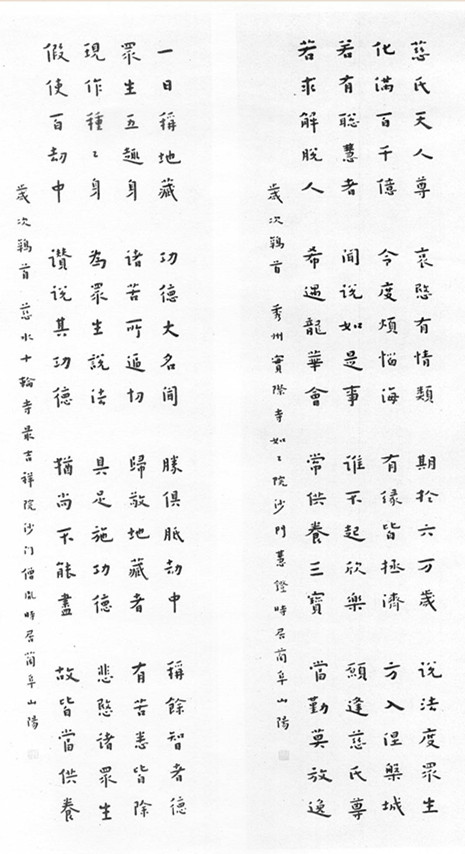 慈氏天人尊 哀愍有情類 期於六万歲 說法度眾生
化滿百千億 令度煩惱海 有緣皆拯濟 方入涅槃城
若有聡慧者 聞說如是事 誰不起欣樂 願逢慈氏尊
若求解脫人 希遇龍華會 常供養三寶 當勤莫放逸
歲次鶉首 秀州實際寺如々院沙門慧鐙時居蘭阜山陽
一日稱地藏 功德大名聞 勝俱胝劫中 稱餘智者德
眾生五趣身 諸苦所逼切 歸敬地藏者 有苦悉皆除
現作種々身 為眾生說法 具足施功德 悲愍諸眾生
假使百劫中 讚說其功德 猶尚不能盡 故皆當供養
歲次鶉首 慈水十輪寺最吉祥院沙门僧胤時居蘭阜山陽